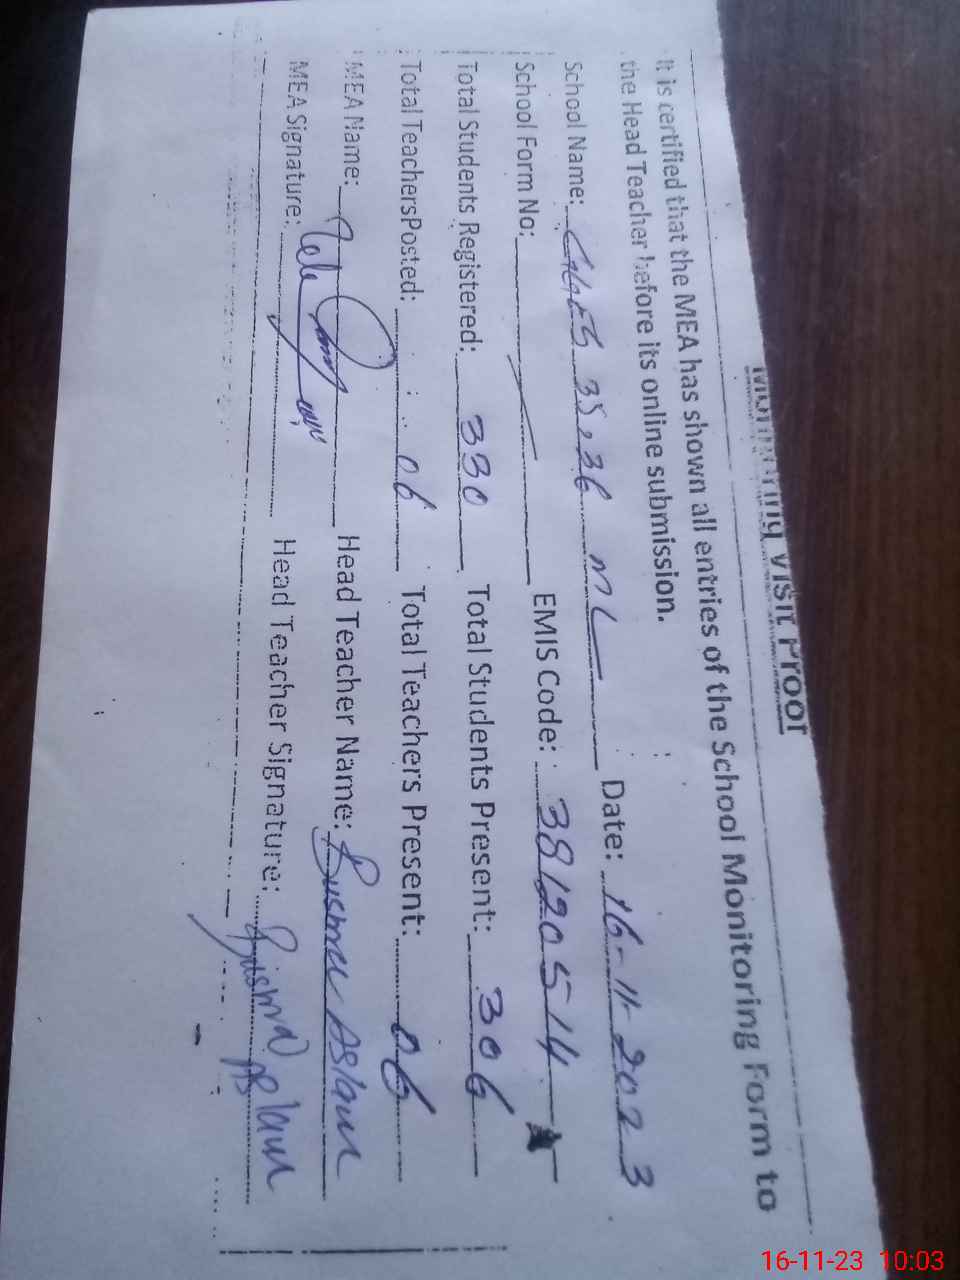 Monitoring Visit Proof
It is certified that the MEA has shown all entries of the School Monitoring Form to
the Head Teacher before its online submission.
School Name: GGES 35.36 ML Date: 16-11-2023
School Form No: EMIS Code: 38120514
Total Students Registered: 330 Total Students Present: 306
Total TeachersPosted: 06 Total Teachers Present: 06
MEA Name: Head Teacher Name: Busma Aslam
MEA Signature: Head Teacher Signature: Aslam
16-11-23 10:03